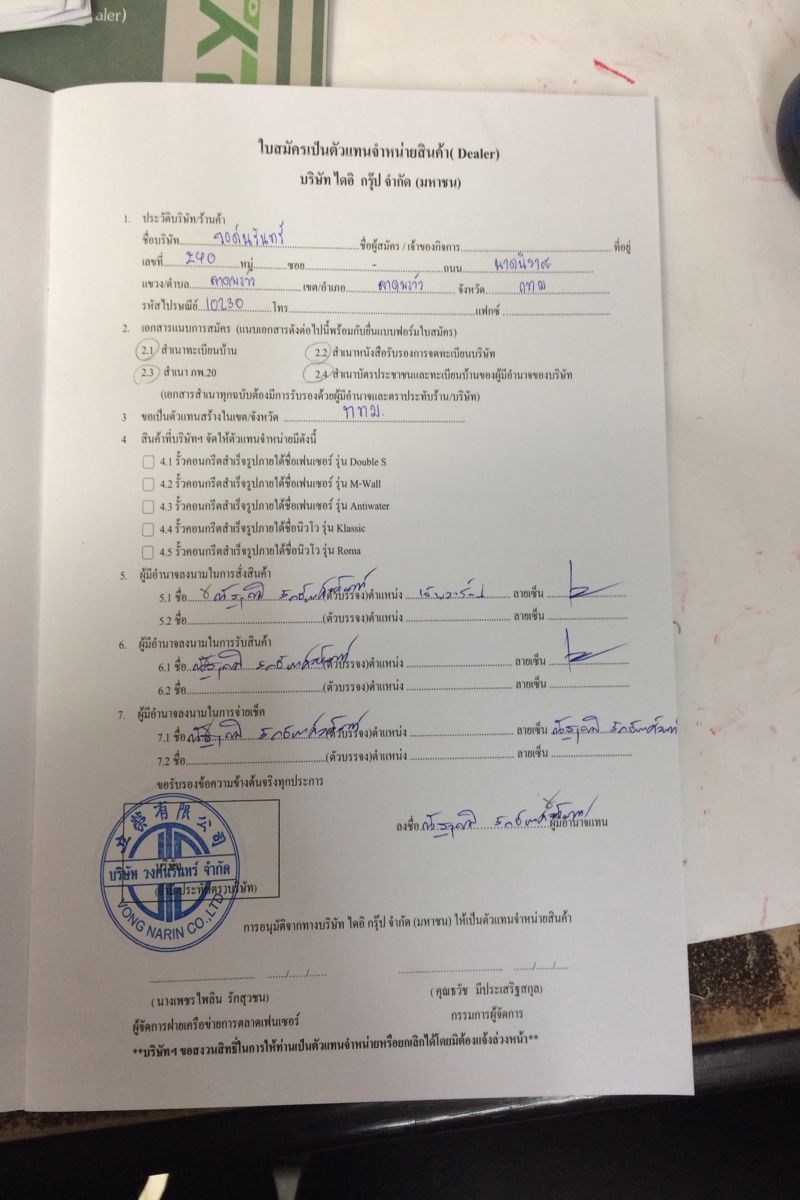 aler)
ใบสมัครเป็นตัวแทนจำหน่ายสินค้า( Dealer)
บริษัท ไดอิ กรุ๊ป จำกัด (มหาชน)
1. ประวัติบริษัท/ร้านค้า
ชื่อบริษัท วงศ์นรินทร์ ชื่อผู้สมัคร / เจ้าของกิจการ ที่อยู่
เลขที่ 240 หมู่ ซอย - ถนน นาคนิวาส
แขวง/ตำบล ลาดพร้าว เขต/อำเภอ ลาดพร้าว จังหวัด กทม
รหัสไปรษณีย์ 10230 โทร แฟกซ์
2. เอกสารแนบการสมัคร (แนบเอกสารดังต่อไปนี้พร้อมกับยื่นแบบฟอร์มใบสมัคร)
2.1 สำเนาทะเบียนบ้าน 2.2 สำเนาหนังสือรับรองการจดทะเบียนบริษัท
2.3 สำเนา ภพ.20 2.4 สำเนาบัตรประชาชนและทะเบียนบ้านของผู้มีอำนาจของบริษัท
(เอกสารสำเนาทุกฉบับต้องมีการรับรองด้วยผู้มีอำนาจและตราประทับร้าน/บริษัท)
3 ขอเป็นตัวแทนสร้างในเขต/จังหวัด กทม.
4 สินค้าที่บริษัทฯ จัดให้ตัวแทนจำหน่ายมีดังนี้
4.1 รั้วคอนกรีตสำเร็จรูปภายใต้ชื่อเฟนเซอร์ รุ่น Double S
4.2 รั้วคอนกรีตสำเร็จรูปภายใต้ชื่อเฟนเซอร์ รุ่น M-Wall
4.3 รั้วคอนกรีตสำเร็จรูปภายใต้ชื่อเฟนเซอร์ รุ่น Antiwater
4.4 รั้วคอนกรีตสำเร็จรูปภายใต้ชื่อนิวโว รุ่น Klassic
4.5 รั้วคอนกรีตสำเร็จรูปภายใต้ชื่อนิวโว รุ่น Roma
5. ผู้มีอำนาจลงนามในการสั่งสินค้า
5.1 ชื่อ (ตัวบรรจง)ตำแหน่ง ลายเซ็น
5.2 ชื่อ (ตัวบรรจง)ตำแหน่ง ลายเซ็น
6. ผู้มีอำนาจลงนามในการรับสินค้า
6.1 ชื่อ (ตัวบรรจง)ตำแหน่ง ลายเซ็น
6.2 ชื่อ (ตัวบรรจง)ตำแหน่ง ลายเซ็น
7. ผู้มีอำนาจลงนามในการจ่ายเช็ค
7.1 ชื่อ (ตัวบรรจง)ตำแหน่ง ลายเซ็น
7.2 ชื่อ (ตัวบรรจง)ตำแหน่ง ลายเซ็น
ขอรับรองข้อความข้างต้นจริงทุกประการ
ลงชื่อ ผู้มีอำนาจแทน
榮有限公司
บริษัท วงศ์นรินทร์ จำกัด
VONG NARIN CO.,LTD
ประทับตราบริษัท)
การอนุมัติจากทางบริษัท ไดอิ กรุ๊ป จำกัด (มหาชน) ให้เป็นตัวแทนจำหน่ายสินค้า
(นางเพชรไพลิน รักสุวชน) (คุณธวัช มีประเสริฐสกุล)
ผู้จัดการฝ่ายเครือข่ายการตลาดเฟนเซอร์ กรรมการผู้จัดการ
**บริษัทฯ ขอสงวนสิทธิ์ในการให้ท่านเป็นตัวแทนจำหน่ายหรือยกเลิกได้โดยมิต้องแจ้งล่วงหน้า**